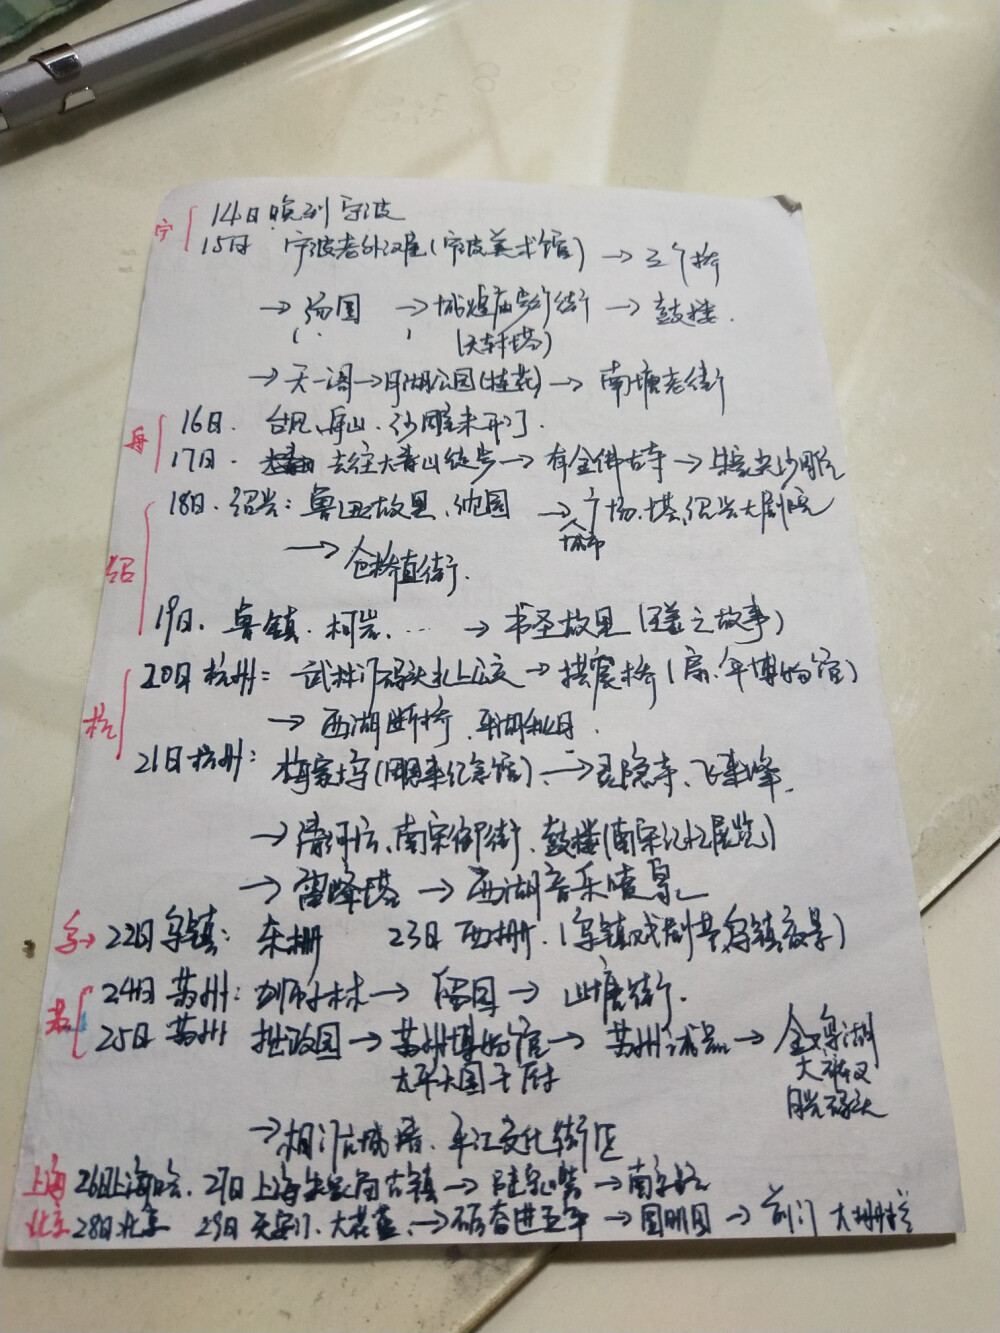 宁 14日晚到宁波
15日 宁波老外滩(宁波美术馆)→三个桥
→汤圆 →城隍庙步行街→鼓楼.
(天封塔)
→天一阁→月湖公园(桂花)→南塘老街
舟 16日. 台风、舟山、沙雕未开门.
17日. 去往大青山徒步→有全佛古寺→朱家尖沙雕
18日. 绍兴: 鲁迅故里、沈园 →广场、塔、绍兴大剧院
城市
绍 →仓桥直街.
19日. 鲁镇. 柯岩. … →书圣故里(王羲之故事)
20日杭州: 武林门码头水上公交→拱宸桥(扇、伞博物馆)
杭 →西湖断桥、平湖秋月.
21日杭州: 梅家坞(周恩来纪念馆)、→灵隐寺、飞来峰.
→清河坊、南宋御街、鼓楼(南宋记忆展览)
→雷峰塔→西湖音乐喷泉
乌→22日乌镇: 东栅 23日西栅.(乌镇戏剧节、乌镇夜景)
24日苏州: 狮子林→留园→山塘街.
苏 25日苏州 拙政园→苏州博物馆→苏州→金鸡湖
太平天国王府 大裤衩
月光码头
→相门古城墙、平江文化街区
上海 26日上海. 27日上海朱家角古镇→陆家嘴→南京路
北京 28日北京 29日天安门、大花篮、→砥砺奋进五年→圆明园→前门 大栅栏